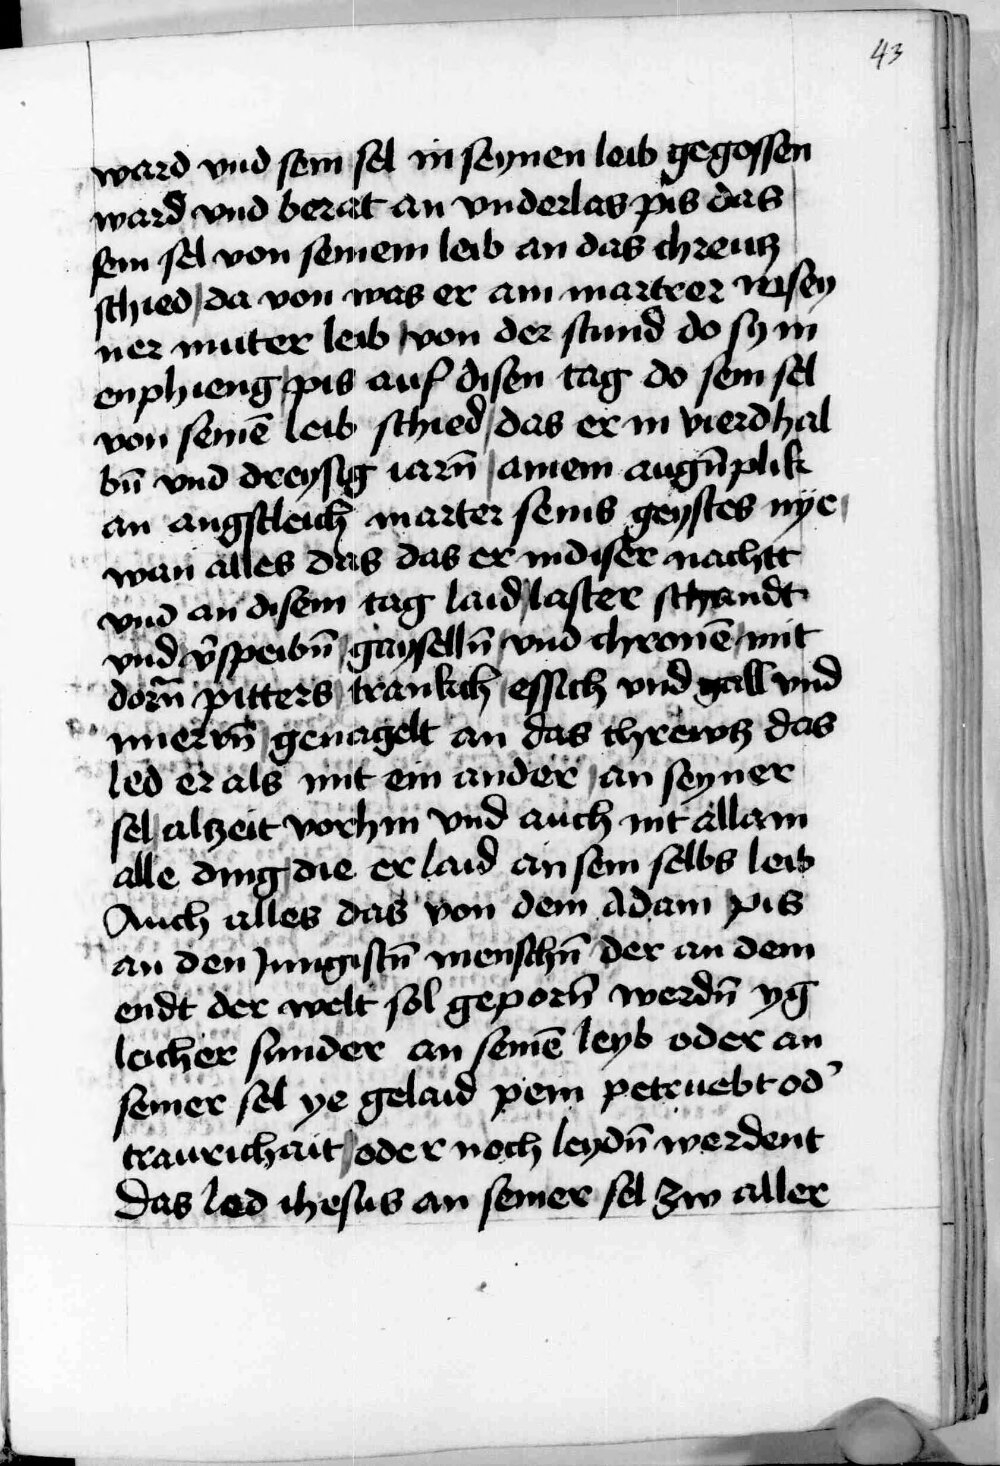 43
ward vnd sein sel in seynen leib gegossen
ward vnd berait an vnderlas pis das
sein sel von seinem leib an das chreutz
schied / da von was er ain martrer in sey
ner muter leib / von der stund do sy in
enphieng / pis auf disen tag do sein sel
von seinē leib schied / das er in vierdhal
bn̄ vnd dreysig iarn̄ / ainem augn̄plik
an angstleich marter seins geystes nye /
wan alles das das er in diser nachtt
vnd an disem tag laid / laster schandt
vnd v̄speibn̄ / gayselln̄ vnd chronē / mit
dorn̄ pitters / trankch / essich vnd gall vnd
genagelt an das chrewtz das
led er als mit ein ander / an seyner
sel / altzeit vorhin vnd auch nit allain
alle ding / die er laid an sein selbs leib
Auch alles das von dem Adam / pis
an den Jungistn̄ menschn̄ der an dem
endt der welt sol geporn̄ werdn̄ yg
leicher sunder an seinē leyb oder an
seiner sel ye gelaid pein petruebt od'
traurichait / oder noch leydn̄ werdent
das led ihesus an seiner sel zw aller